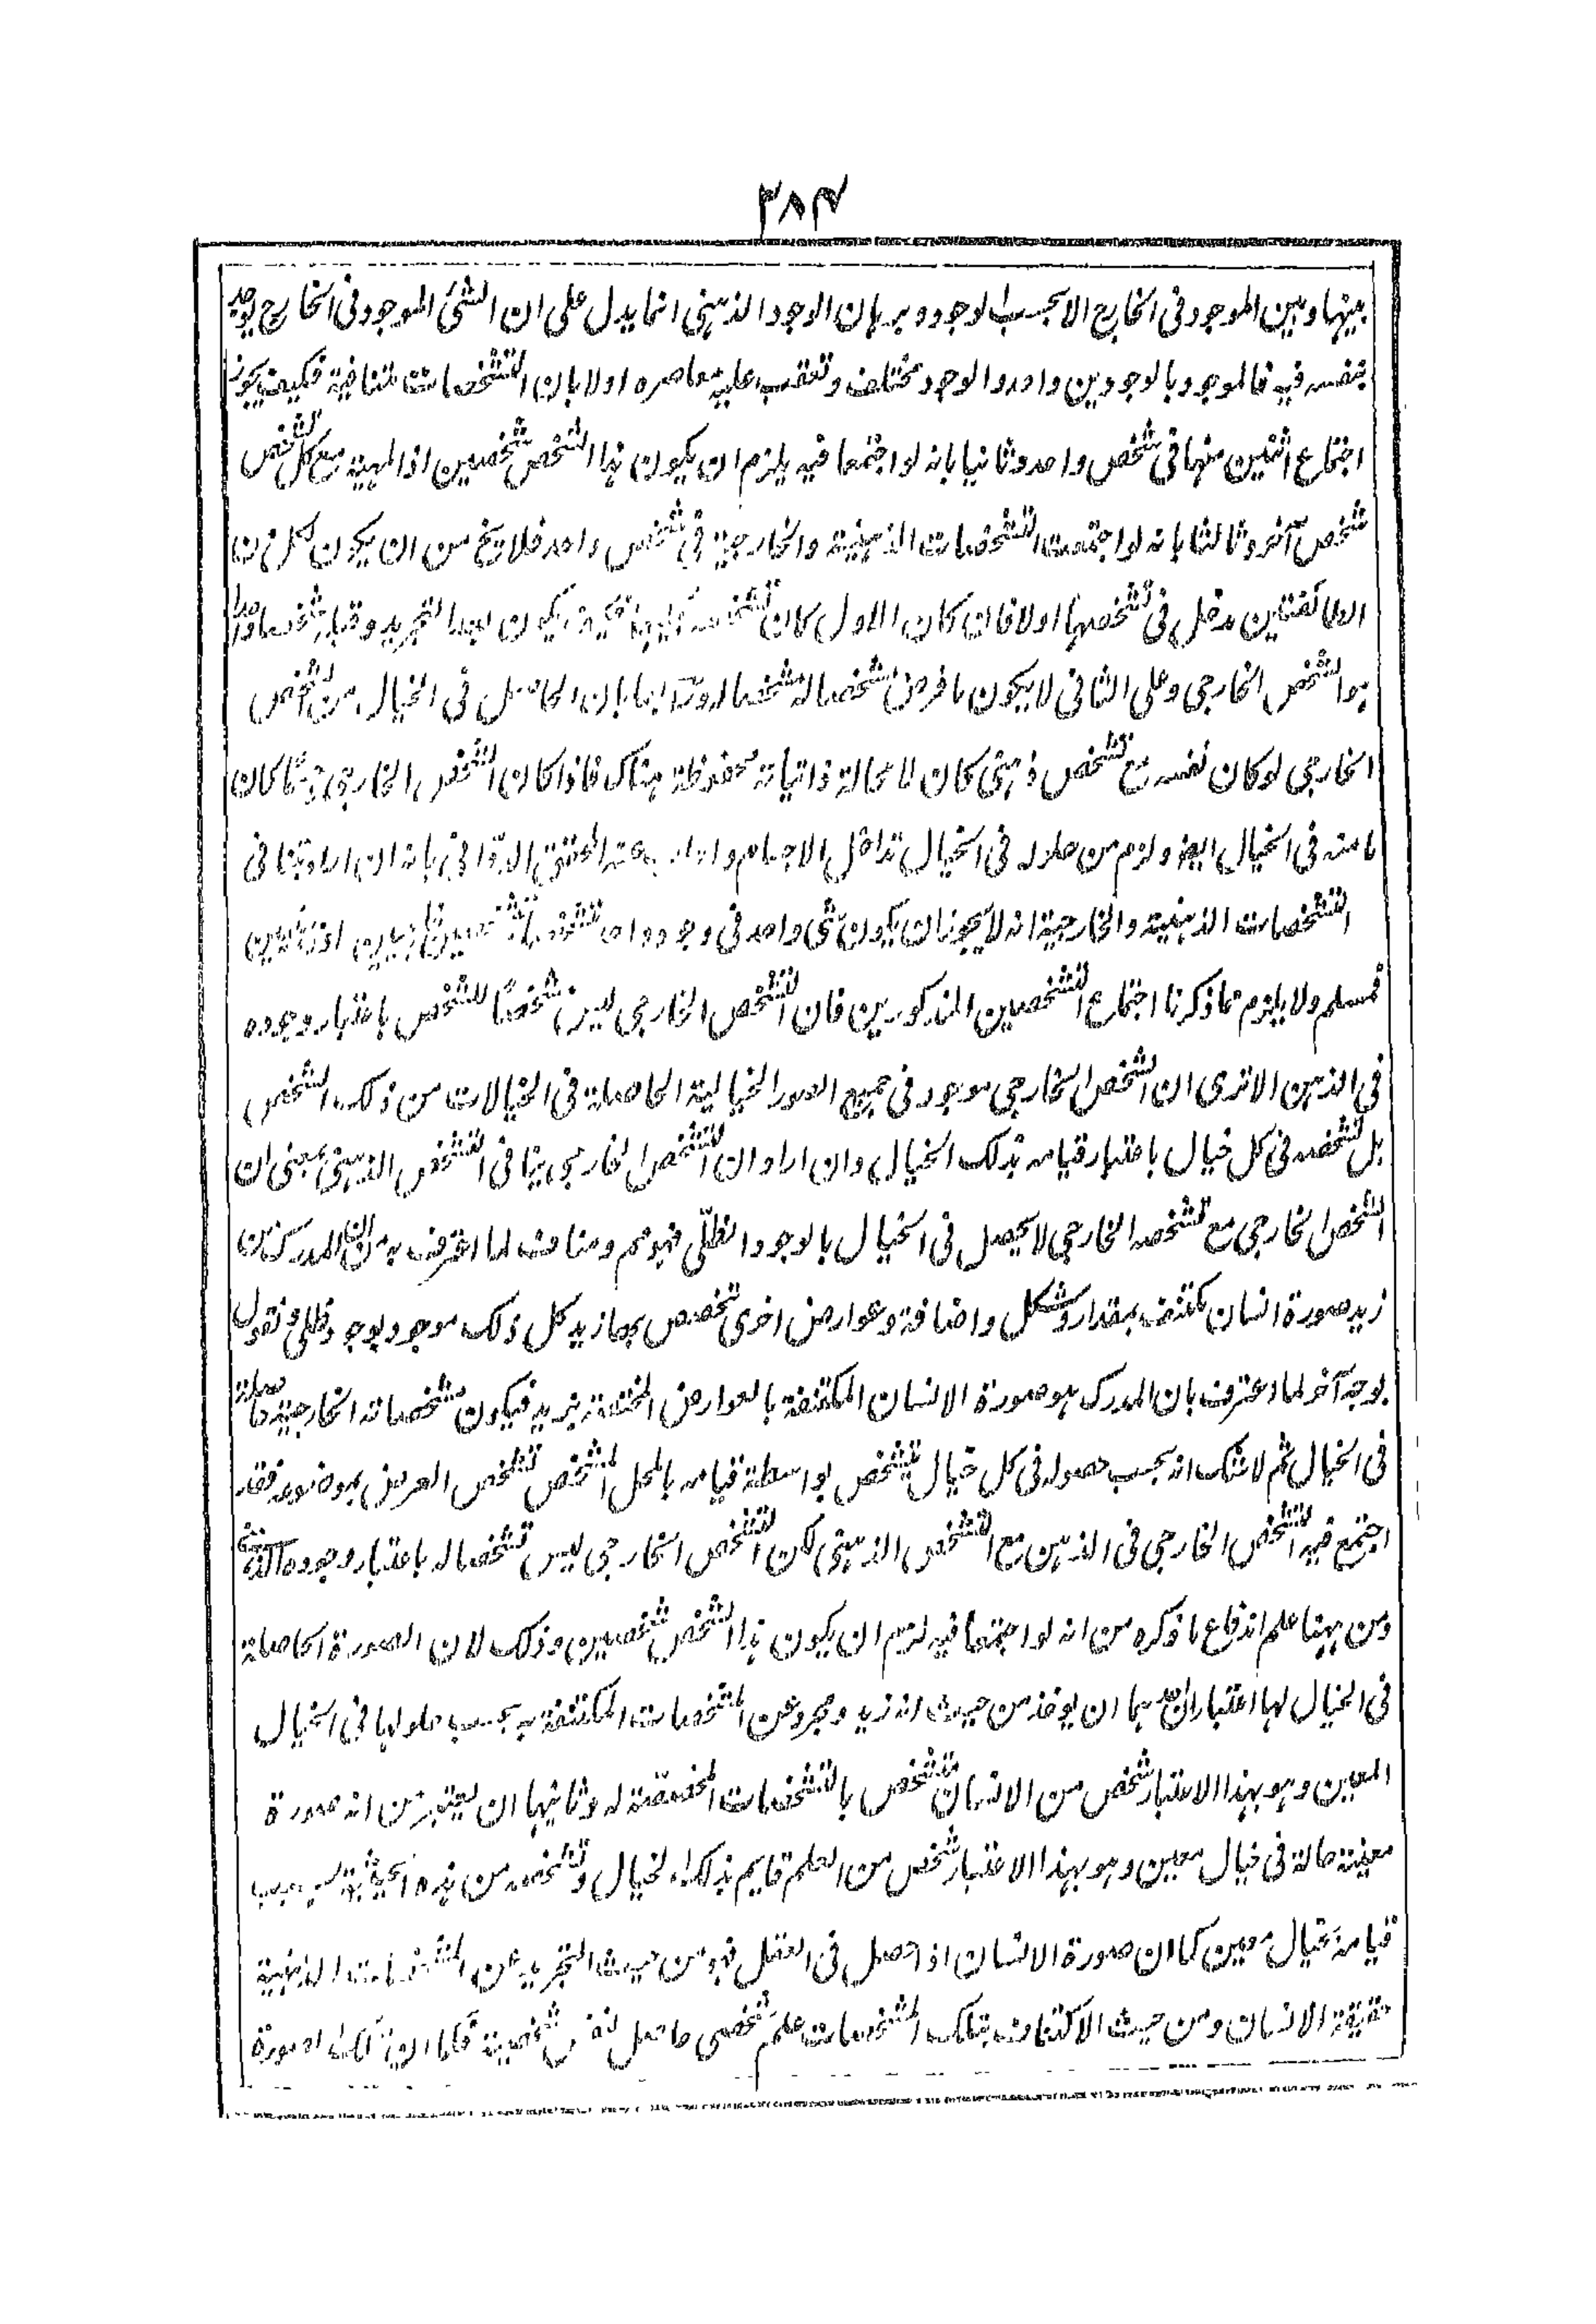 ٣٨٤
بينها وبين الموجود فى الخارج الا بحسب الوجود وبرهان الوجود الذهنى انما يدل على ان الشئ الموجود فى الخارج يوجد
بنفسه فيه فالموجود بالوجودين واحد والوجود مختلف وتعقب عليه معاصره اولا بان التشخصات متنافية فكيف يجوز
اجتماع اثنين منها فى شخص واحد وثانيا بانه لو اجتمعا فيه يلزم ان يكون هذا الشخص شخصين اذ المهية مع كل تشخص
شخص آخر وثالثا بانه لو اجتمعت التشخصات الذهنية والخارجية فى شخص واحد فلا يخ من ان يكون لكل من
الطائفتين مدخل فى تشخصها اولا فان كان الاول كان يكون بعد التجريد وقبله شخصا واحدا
هو الشخص الخارجى وعلى الثانى لا يكون ما فرض تشخصا له تشخصا له ورابعا بان الحاصل فى الخيال من الشخص
الخارجى لو كان نفسه مع تشخص ذهنى كان لا محالة ذاتياته محفوظة هناك فاذا كان الشخص الخارجى جسما كان
ما منه فى الخيال ايضا ولزم من حلوله فى الخيال تداخل الاجسام واجاب عنه المحقق الدوانى بانه ان اراد بتنافى
التشخصات الذهنية والخارجية انه لا يجوز ان يكون شئ واحد فى وجود واحد
فمسلم ولا يلزم مما ذكرنا اجتماع التشخصين المذكورين فان التشخص الخارجى ليس تشخصًا للشخص باعتبار وجوده
فى الذهن الا ترى ان الشخص الخارجى موجود فى جميع الصور الخيالية الحاصلة فى الخيالات من ذلك الشخص
بل تشخصه فى كل خيال باعتبار قيامه بذلك الخيال وان اراد ان التشخص الخارجى ينافى التشخص الذهنى بمعنى ان
الشخص الخارجى مع تشخصه الخارجى لا يحصل فى الخيال بالوجود الظلّى فهو مم ومناف لما اعترف به من ان المدرك من
زيد صورة انسان مكتنف بمقدار وشكل واضافة وعوارض اخرى تخصص بها زيد كل ذلك موجود بوجود ظلى ونقول
بوجه آخر لما اعترف بان المدرك هو صورة الانسان المكتنفة بالعوارض المختصة بزيد فيكون تشخصاته الخارجية حاصلة
فى الخيال ثم لا شك انه بحسب حصوله فى كل خيال يتشخص بواسطة قيامه بالمحل المشخص تشخص العرض بموضوعه فقد
اجتمع فيه التشخص الخارجى فى الذهن مع التشخص الذهنى لكن التشخص الخارجى ليس تشخصا له باعتبار وجوده الذهنى
ومن ههنا علم اندفاع ما ذكره من انه لو اجتمعا فيه لزم ان يكون هذا الشخص شخصين وذلك لان الصورة الحاصلة
فى الخيال لها اعتباران احدهما ان يوخذ من حيث انه زيد ومجرد عن المشخصات المكتنفة به بحسب حلولها فى الخيال
المعين وهو بهذا الاعتبار شخص من الانسان متشخص بالتشخصات المخصصة له وثانيها ان يعتبر من انه صورة
معينة حالة فى خيال معين وهو بهذا الاعتبار شخص من العلم قايم بذلك الخيال وتشخصه من هذه الحيثية بسبب
قيامه بخيال معين كما ان صورة الانسان اذا حصل فى العقل فهو من حيث التجريد عن المشخصات الذهنية
حقيقة الانسان ومن حيث الاكتناف بتلك المشخصات علم شخصى حاصل لنفس شخصية فكما ان تلك الصورة